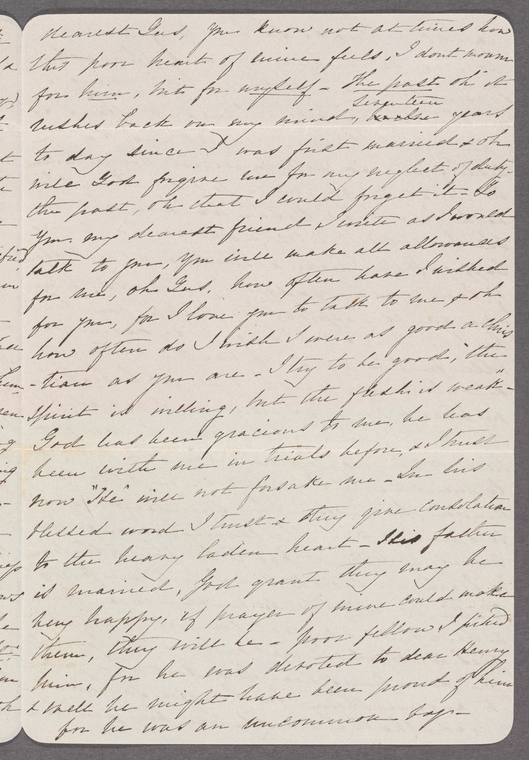 dearest Gus, you know not at times how
this poor heart of mine feels, I dont mourn
for him, but for myself - The past oh it
seventeen
rushes back on my mind, twelve years
to day since I was first married & oh
will God forgive me for my neglect of duty -
the past, oh that I could forget it - To
you my dearest friend I write as I would
talk to you, you will make all allowances
for me, oh Gus, how often have I wished
for you, for I love you to talk to me & oh
how often do I wish I were as good a Chris
-tian as you are - I try to be good, "the
spirit is willing, but the flesh is weak" -
God has been gracious to me, he has
been with me in trials before, & I trust
now "He" will not forsake me - In his
blessed word I trust & they give consolation
to the heavy laden heart - His father
is married, God grant they may be
very happy, if prayer of mine could make
them, they will be - poor fellow I pitied
him, for he was devoted to dear Henry
& well he might have been proud of him
for he was an uncommon boy -